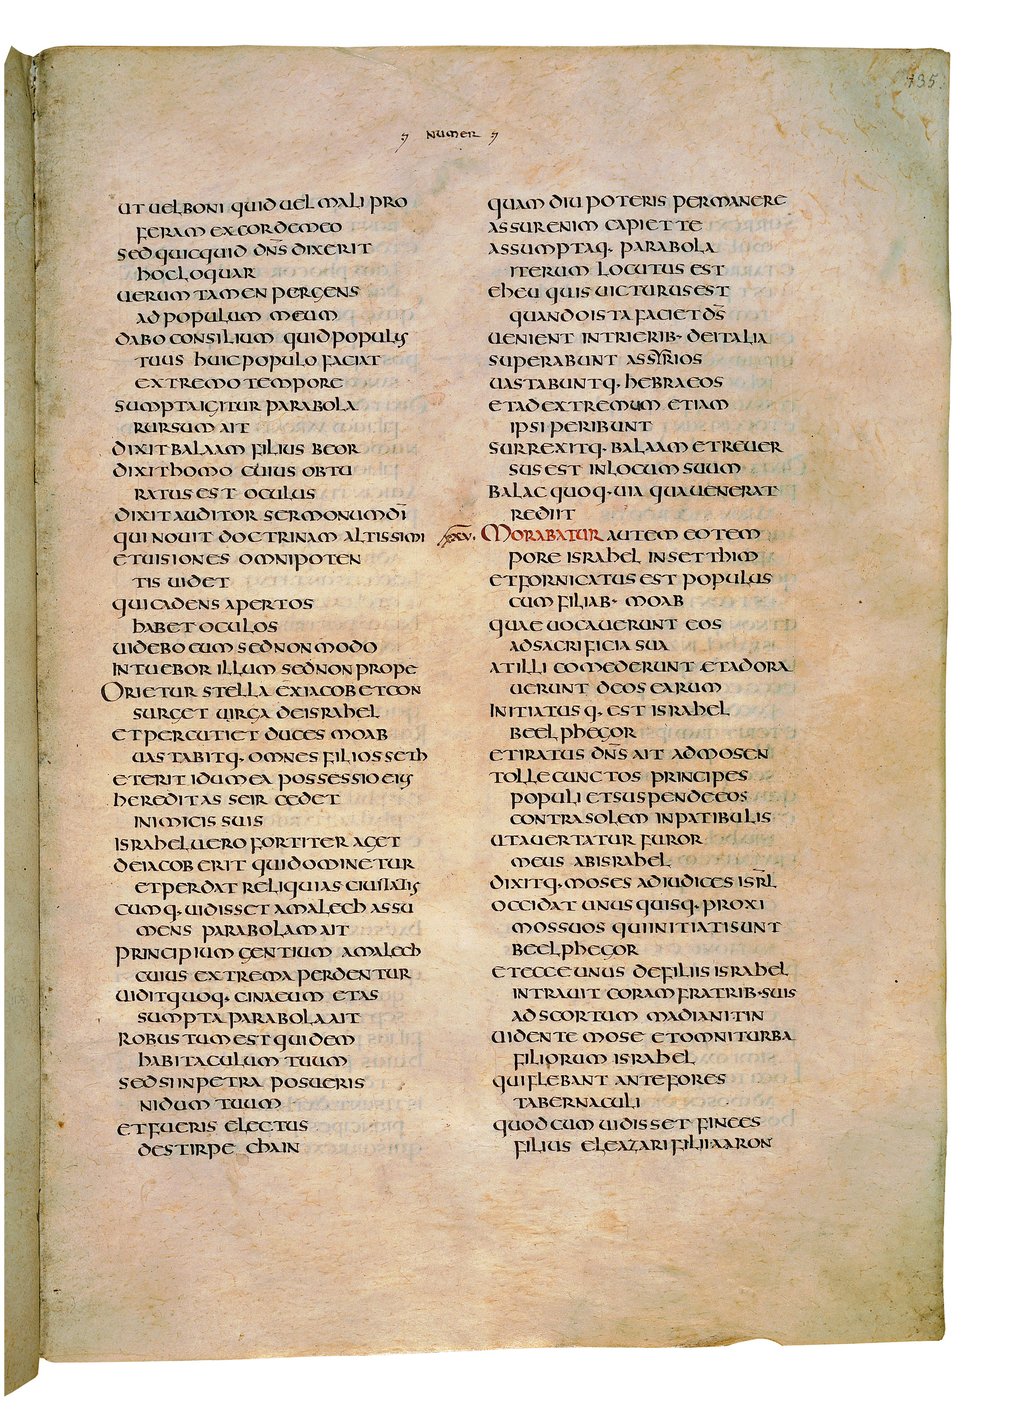 135.
NUMER
UT UEL BONI QUID UEL MALI PRO
FERAM EX CORDE MEO
SED QUICQUID DN̅S DIXERIT
HOC LOQUAR
UERUM TAMEN PERGENS
AD POPULUM MEUM
DABO CONSILIUM QUID POPULUS
TUUS HUIC POPULO FACIAT
EXTREMO TEMPORE
SUMPTA IGITUR PARABOLA
RURSUM AIT
DIXIT BALAAM FILIUS BEOR
DIXIT HOMO CUIUS OBTU
RATUS EST OCULUS
DIXIT AUDITOR SERMONUM DI̅
QUI NOUIT DOCTRINAM ALTISSIMI
ET UISIONES OMNIPOTEN
TIS UIDET
QUI CADENS APERTOS
HABET OCULOS
UIDEBO EUM SED NON MODO
INTUEBOR ILLUM SED NON PROPE
ORIETUR STELLA EX IACOB ET CON
SURGET UIRGA DE ISRAHEL
ET PERCUTIET DUCES MOAB
UASTABITQ· OMNES FILIOS SETH
ET ERIT IDUMEA POSSESSIO EIUS
HEREDITAS SEIR CEDET
INIMICIS SUIS
ISRAHEL UERO FORTITER AGET
DE IACOB ERIT QUI DOMINETUR
ET PERDAT RELIQUIAS CIUITATIS
CUMQ· UIDISSET AMALECH ASSU
MENS PARABOLAM AIT
PRINCIPIUM GENTIUM AMALECH
CUIUS EXTREMA PERDENTUR
UIDIT QUOQ· CINAEUM ET AS
SUMPTA PARABOLA AIT
ROBUSTUM EST QUIDEM
HABITACULUM TUUM
SED SI IN PETRA POSUERIS
NIDUM TUUM
ET FUERIS ELECTUS
DE STIRPE CHAIN
QUAM DIU POTERIS PERMANERE
ASSUR ENIM CAPIET TE
ASSUMPTAQ· PARABOLA
ITERUM LOCUTUS EST
EHEU QUIS UICTURUS EST
QUANDO ISTA FACIET DS̅
UENIENT IN TRIERIB· DE ITALIA
SUPERABUNT ASSYRIOS
UASTABUNTQ· HEBRAEOS
ET AD EXTREMUM ETIAM
IPSI PERIBUNT
SURREXITQ· BALAAM ET REUER
SUS EST IN LOCUM SUUM
BALAC QUOQ· UIA QUA UENERAT
REDIIT
XXV. MORABATUR AUTEM EO TEM
PORE ISRAHEL IN SETTHIM
ET FORNICATUS EST POPULUS
CUM FILIAB· MOAB
QUAE UOCAUERUNT EOS
AD SACRIFICIA SUA
AT ILLI COMEDERUNT ET ADORA
UERUNT DEOS EARUM
INITIATUSQ· EST ISRAHEL
BEELPHEGOR
ET IRATUS DN̅S AIT AD MOSEN
TOLLE CUNCTOS PRINCIPES
POPULI ET SUSPENDE EOS
CONTRA SOLEM IN PATIBULIS
UT AUERTATUR FUROR
MEUS AB ISRAHEL
DIXITQ· MOSES AD IUDICES ISRL̅
OCCIDAT UNUSQUISQ· PROXI
MOS SUOS QUI INITIATI SUNT
BEELPHEGOR
ET ECCE UNUS DE FILIIS ISRAHEL
INTRAUIT CORAM FRATRIB· SUIS
AD SCORTUM MADIANITIN
UIDENTE MOSE ET OMNI TURBA
FILIORUM ISRAHEL
QUI FLEBANT ANTE FORES
TABERNACULI
QUOD CUM UIDISSET FINEES
FILIUS ELEAZARI FILII AARON